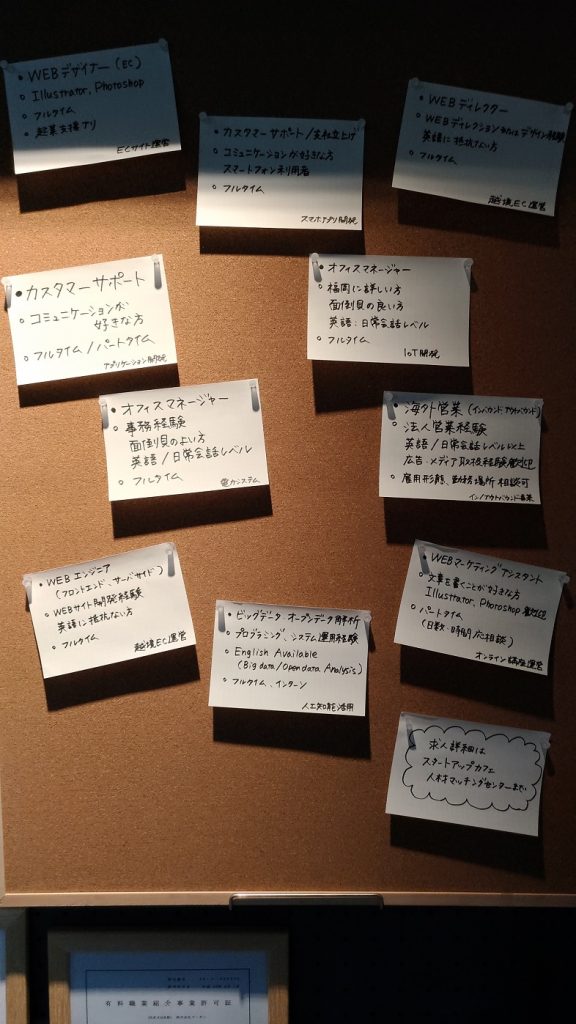 • WEBデザイナー(EC)
○ Illustrator, Photoshop
○ フルタイム
○ 起業支援アリ
ECサイト運営
• カスタマーサポート/支社立上げ
○ コミュニケーションが好きな方
スマートフォン利用者
○ フルタイム
スマホアプリ開発
• WEBディレクター
○ WEBディレクションまたはデザイン経験
英語に抵抗ない方
○ フルタイム
越境EC運営
• カスタマーサポート
○ コミュニケーションが
好きな方
○ フルタイム/パートタイム
アプリケーション開発
• オフィスマネージャー
○ 福岡に詳しい方
面倒見の良い方
英語:日常会話レベル
○ フルタイム
IoT開発
• オフィスマネージャー
○ 事務経験
面倒見のよい方
英語/日常会話レベル
○ フルタイム
電力システム
• 海外営業(インバウンド,アウトバウンド)
○ 法人営業経験
英語/日常会話レベル以上
広告・メディア取扱経験歓迎
○ 雇用形態、勤務場所 相談可
イン/アウトバウンド事業
• WEBエンジニア
(フロントエンド、サーバサイド)
○ WEBサイト開発経験
英語に抵抗ない方
○ フルタイム
越境EC運営
• ビッグデータ・オープンデータ解析
○ プログラミング、システム運用経験
○ English Available
(Big data/Open data Analysis)
○ フルタイム、インターン
人工知能活用
• WEBマーケティングアシスタント
○ 文章を書くことが好きな方
Illustrator, Photoshop 歓迎
○ パートタイム
(日数・時間応相談)
オンライン講座運営
求人詳細は
スタートアップカフェ
人材マッチングセンターまで
有料職業紹介事業許可証